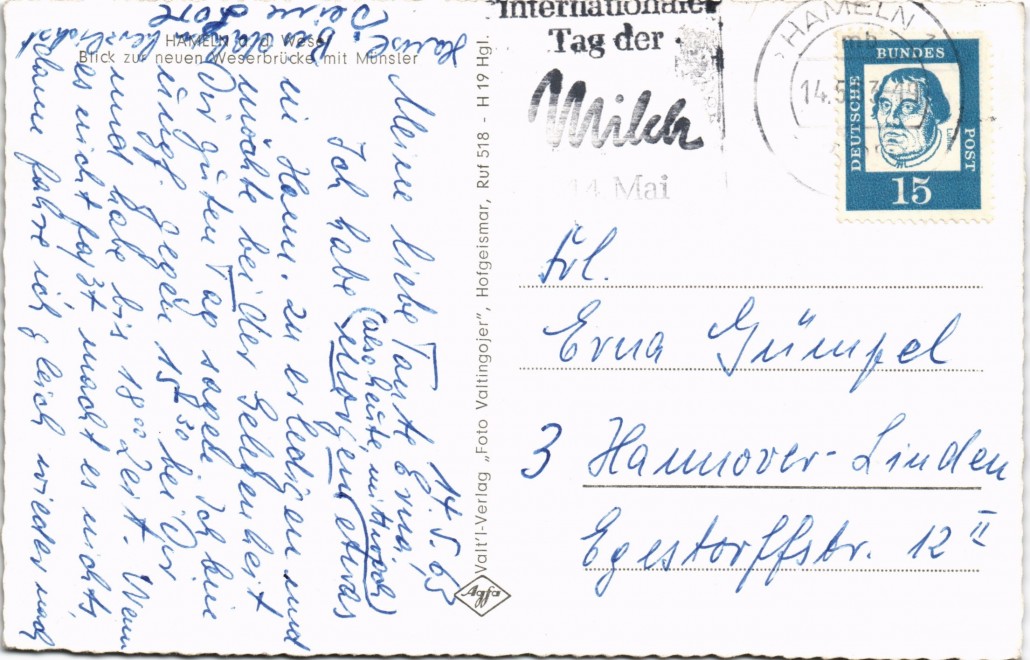 HAMELN a. d. Weser
Blick zur neuen Weserbrücke mit Münster
14.5.63
Meine liebe Tante Erna,
(also heute, mittwoch)
Ich habe morgen etwas
in Hann. zu erledigen und
möchte bei der Gelegenheit
Dir guten Tag sagen. Ich bin
ungf. gegen 15³⁰ bei Dir
und habe bis 18⁰⁰ Zeit. Wenn
es nicht paßt macht es nichts
dann fahre ich gleich wieder nach
Hause.
herzlichst
Deine Lore
Valt'l-Verlag „Foto Valtingojer", Hofgeismar, Ruf 518 - H 19 Hgl.
Agfa
Internationaler
Tag der
Milch
14. Mai
HAMELN 1
mb
14.5.
DEUTSCHE
BUNDES
POST
15
Frl.
Erna Gümpel
3 Hannover-Linden
Egestorffstr. 12 II